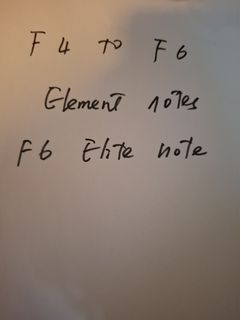 F 4 to F 6
Element notes
F6 Elite note